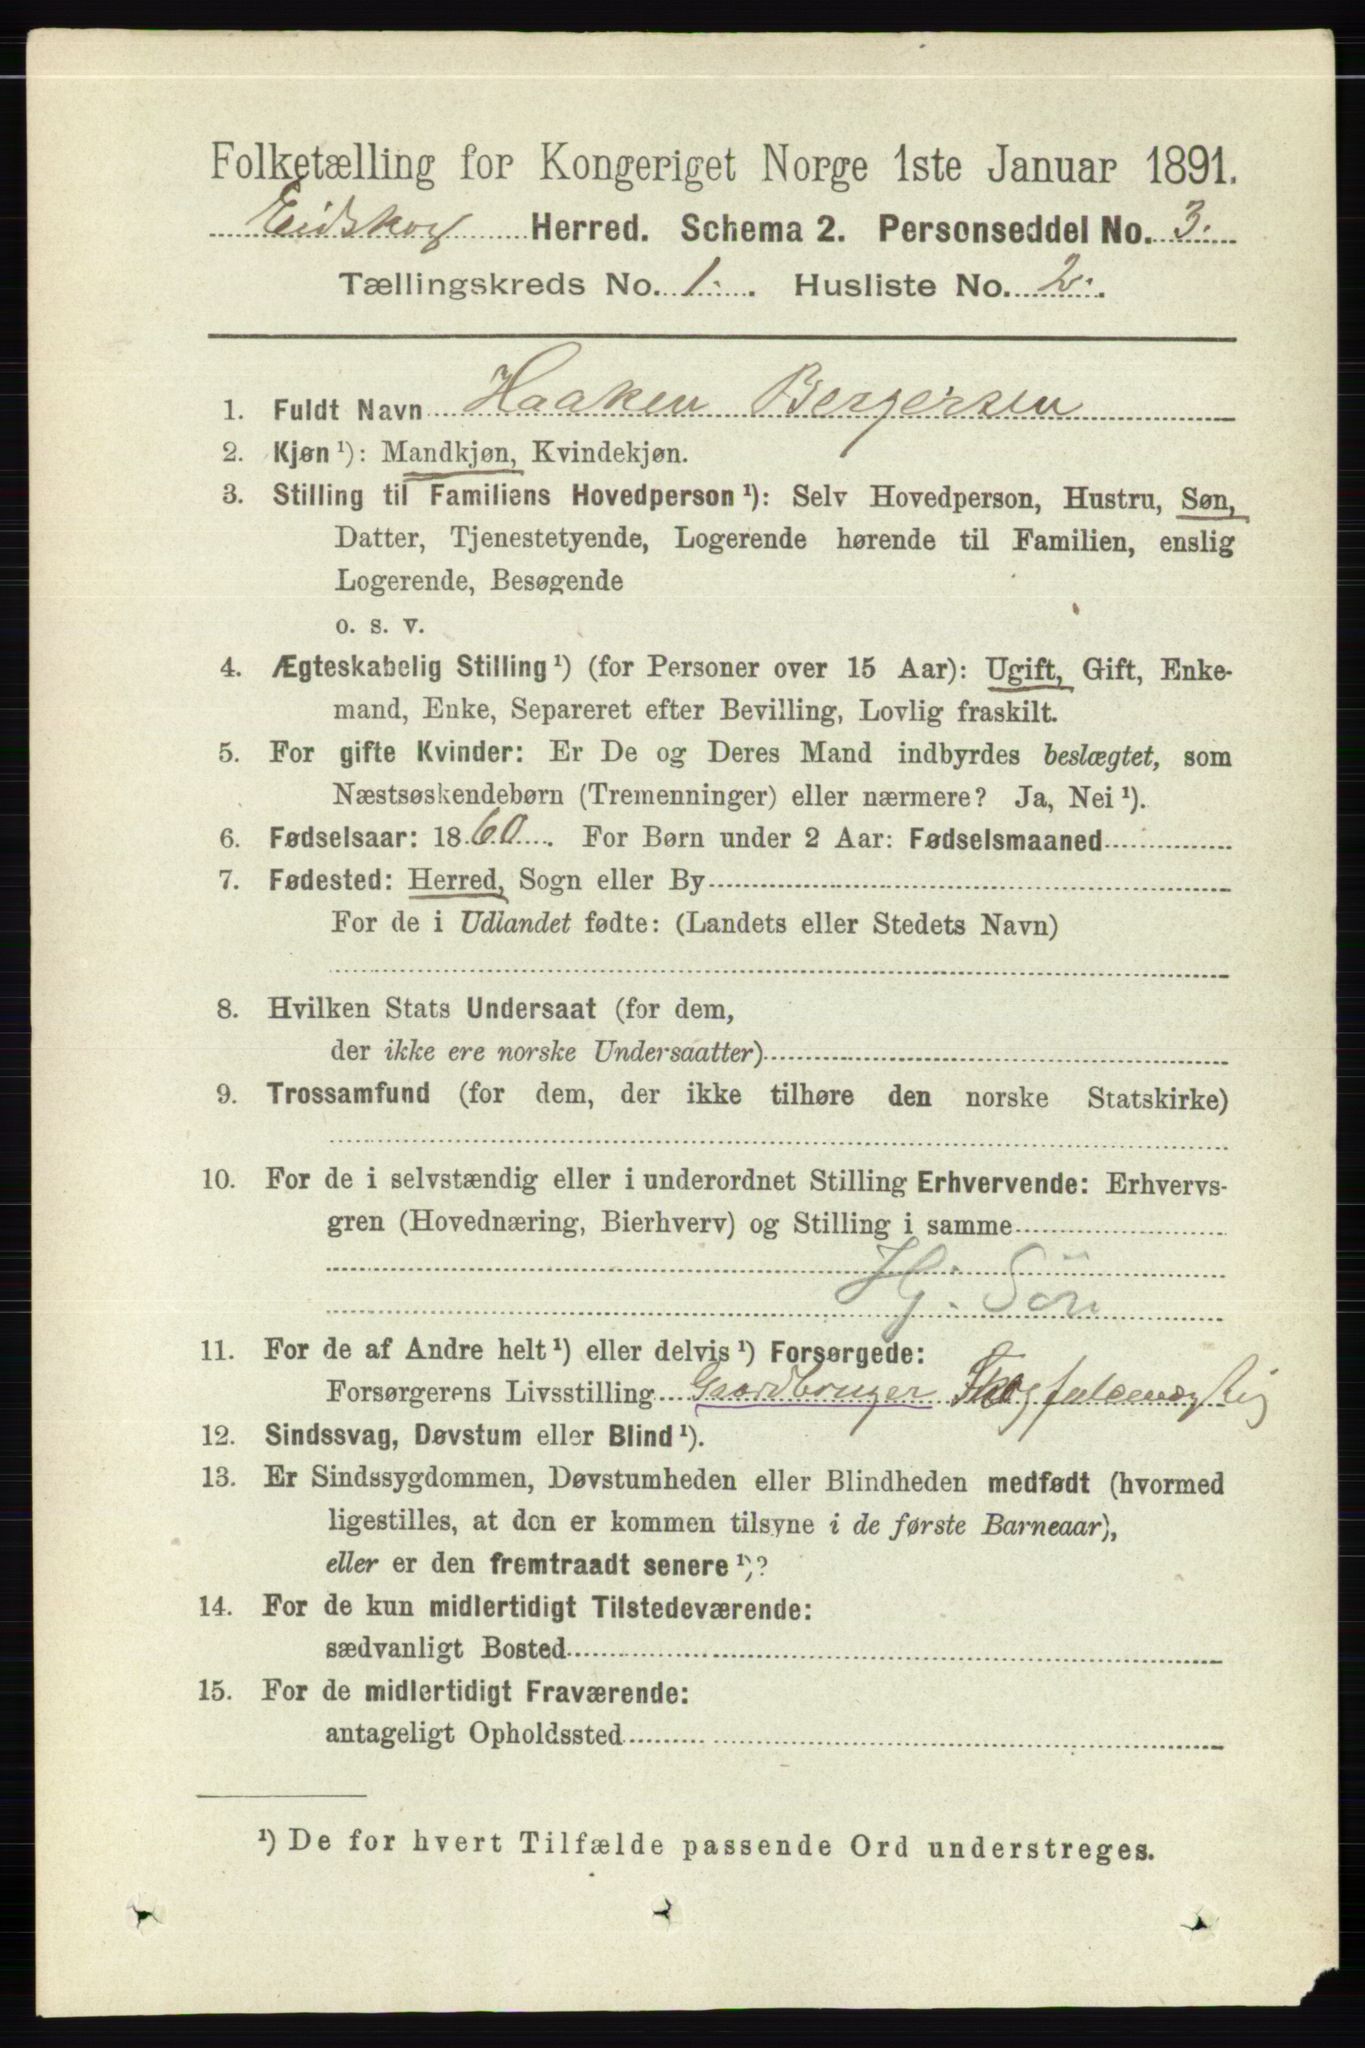 Folketælling for Kongeriget Norge 1ste Januar 1891.
Eidskog Herred. Schema 2. Personseddel No. 3.
Tællingskreds No. 1. Husliste No. 2.
1. Fuldt Navn Haaken Bergersen
2. Kjøn ¹): Mandkjøn, Kvindekjøn.
3. Stilling til Familiens Hovedperson ¹): Selv Hovedperson, Hustru, Søn,
Datter, Tjenestetyende, Logerende hørende til Familien, enslig
Logerende, Besøgende
o. s. v.
4. Ægteskabelig Stilling ¹) (for Personer over 15 Aar): Ugift, Gift, Enke-
mand, Enke, Separeret efter Bevilling, Lovlig fraskilt.
5. For gifte Kvinder: Er De og Deres Mand indbyrdes beslægtet, som
Næstsøskendebørn (Tremenninger) eller nærmere? Ja, Nei ¹).
6. Fødselsaar: 1860. For Børn under 2 Aar: Fødselsmaaned
7. Fødested: Herred, Sogn eller By
For de i Udlandet fødte: (Landets eller Stedets Navn)
8. Hvilken Stats Undersaat (for dem,
der ikke ere norske Undersaatter)
9. Trossamfund (for dem, der ikke tilhøre den norske Statskirke)
10. For de i selvstændig eller i underordnet Stilling Erhvervende: Erhvervs-
gren (Hovednæring, Bierhverv) og Stilling i samme
Hj. Sön
11. For de af Andre helt ¹) eller delvis ¹) Forsørgede:
Forsørgerens Livsstilling Gaardbruger
12. Sindssvag, Døvstum eller Blind ¹).
13. Er Sindssygdommen, Døvstumheden eller Blindheden medfødt (hvormed
ligestilles, at den er kommen tilsyne i de første Barneaar),
eller er den fremtraadt senere ¹)?
14. For de kun midlertidigt Tilstedeværende:
sædvanligt Bosted
15. For de midlertidigt Fraværende:
antageligt Opholdssted
¹) De for hvert Tilfælde passende Ord understreges.